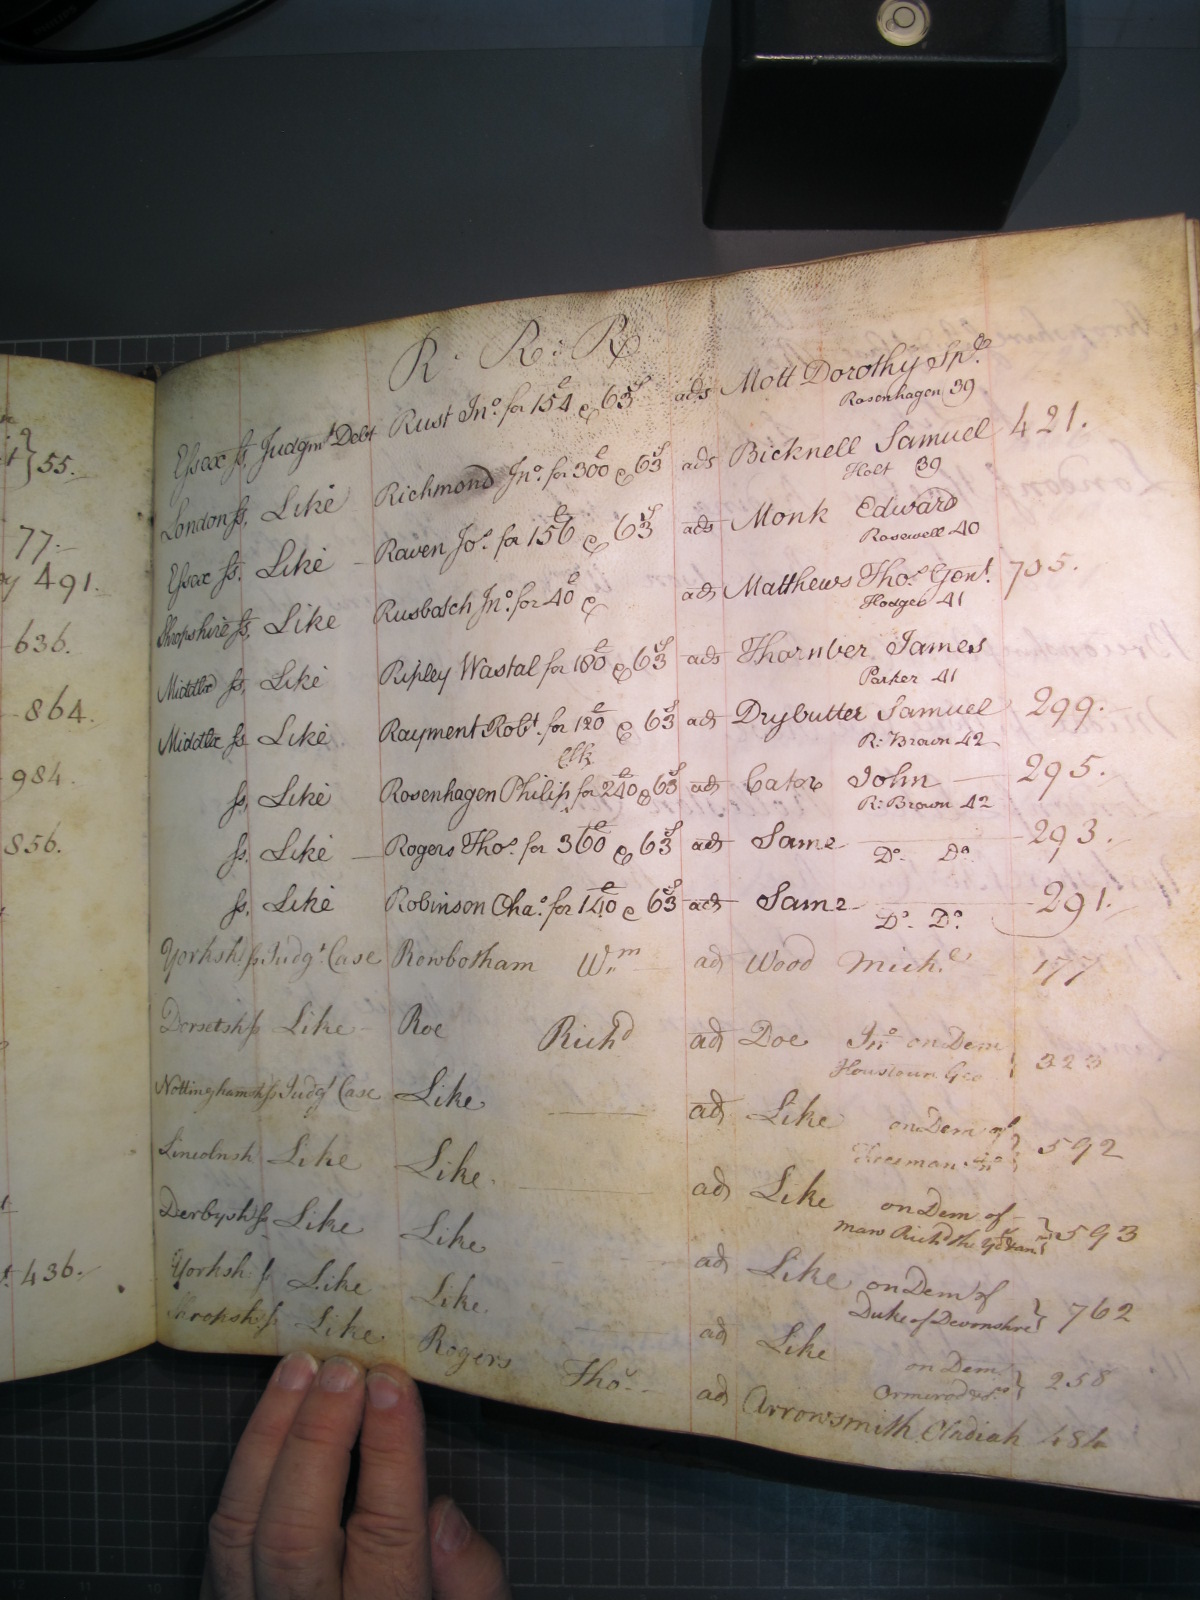 55.
77.
491.
636.
864.
984.
856.
436.
R. R: R
Essex ss. Judgmt. Debt Rust Jno. for 154£ & 63s ads Mott Dorothy Spr.
Rosenhagen 39
London ss. Like Richmond Jno. for 300£ & 63s ads Bicknell Samuel 421.
Holt 39
Essex ss. Like Raven Jos. for 156£ & 63s ads Monk Edward
Rosewell 40
Shropshire ss. Like Rusbatch Jno. for 40£ & ads Matthews Thos. Gent. 705.
Hodges 41
Middlx ss. Like Ripley Wastal for 180£ & 63s ads Thornber James
Parker 41
Middlx ss. Like Rayment Robt. for 120£ & 63s ads Drybutter Samuel 299.
R: Brown 42
Clk
ss. Like Rosenhagen Philip for 240£ & 63s ads Cator John 295.
R: Brown 42
ss. Like Rogers Thos. for 360£ & 63s ads Same 293.
Do. Do.
ss. Like Robinson Cha. for 140£ & 63s ads Same 291.
Do. Do.
Yorksh ss Judgt. Case Rowbotham Wm. ad Wood Michl. 177
Dorsetsh ss Like Roe Richd ad Doe Jno on Dem 323
Houstoun Geo
Nottinghamsh ss Judgt Case Like ad Like on Dem of 592
Freeman Jno
Lincolnsh Like Like ad Like on Dem of 593
man Richd the Yeoman
Derbysh ss Like Like ad Like on Dem of 762
Duke of Devonshre
Yorksh ss Like Like ad Like on Dem 258
Ormerod
Shropsh ss Like Rogers Thos. ad Arrowsmith Obadiah 484